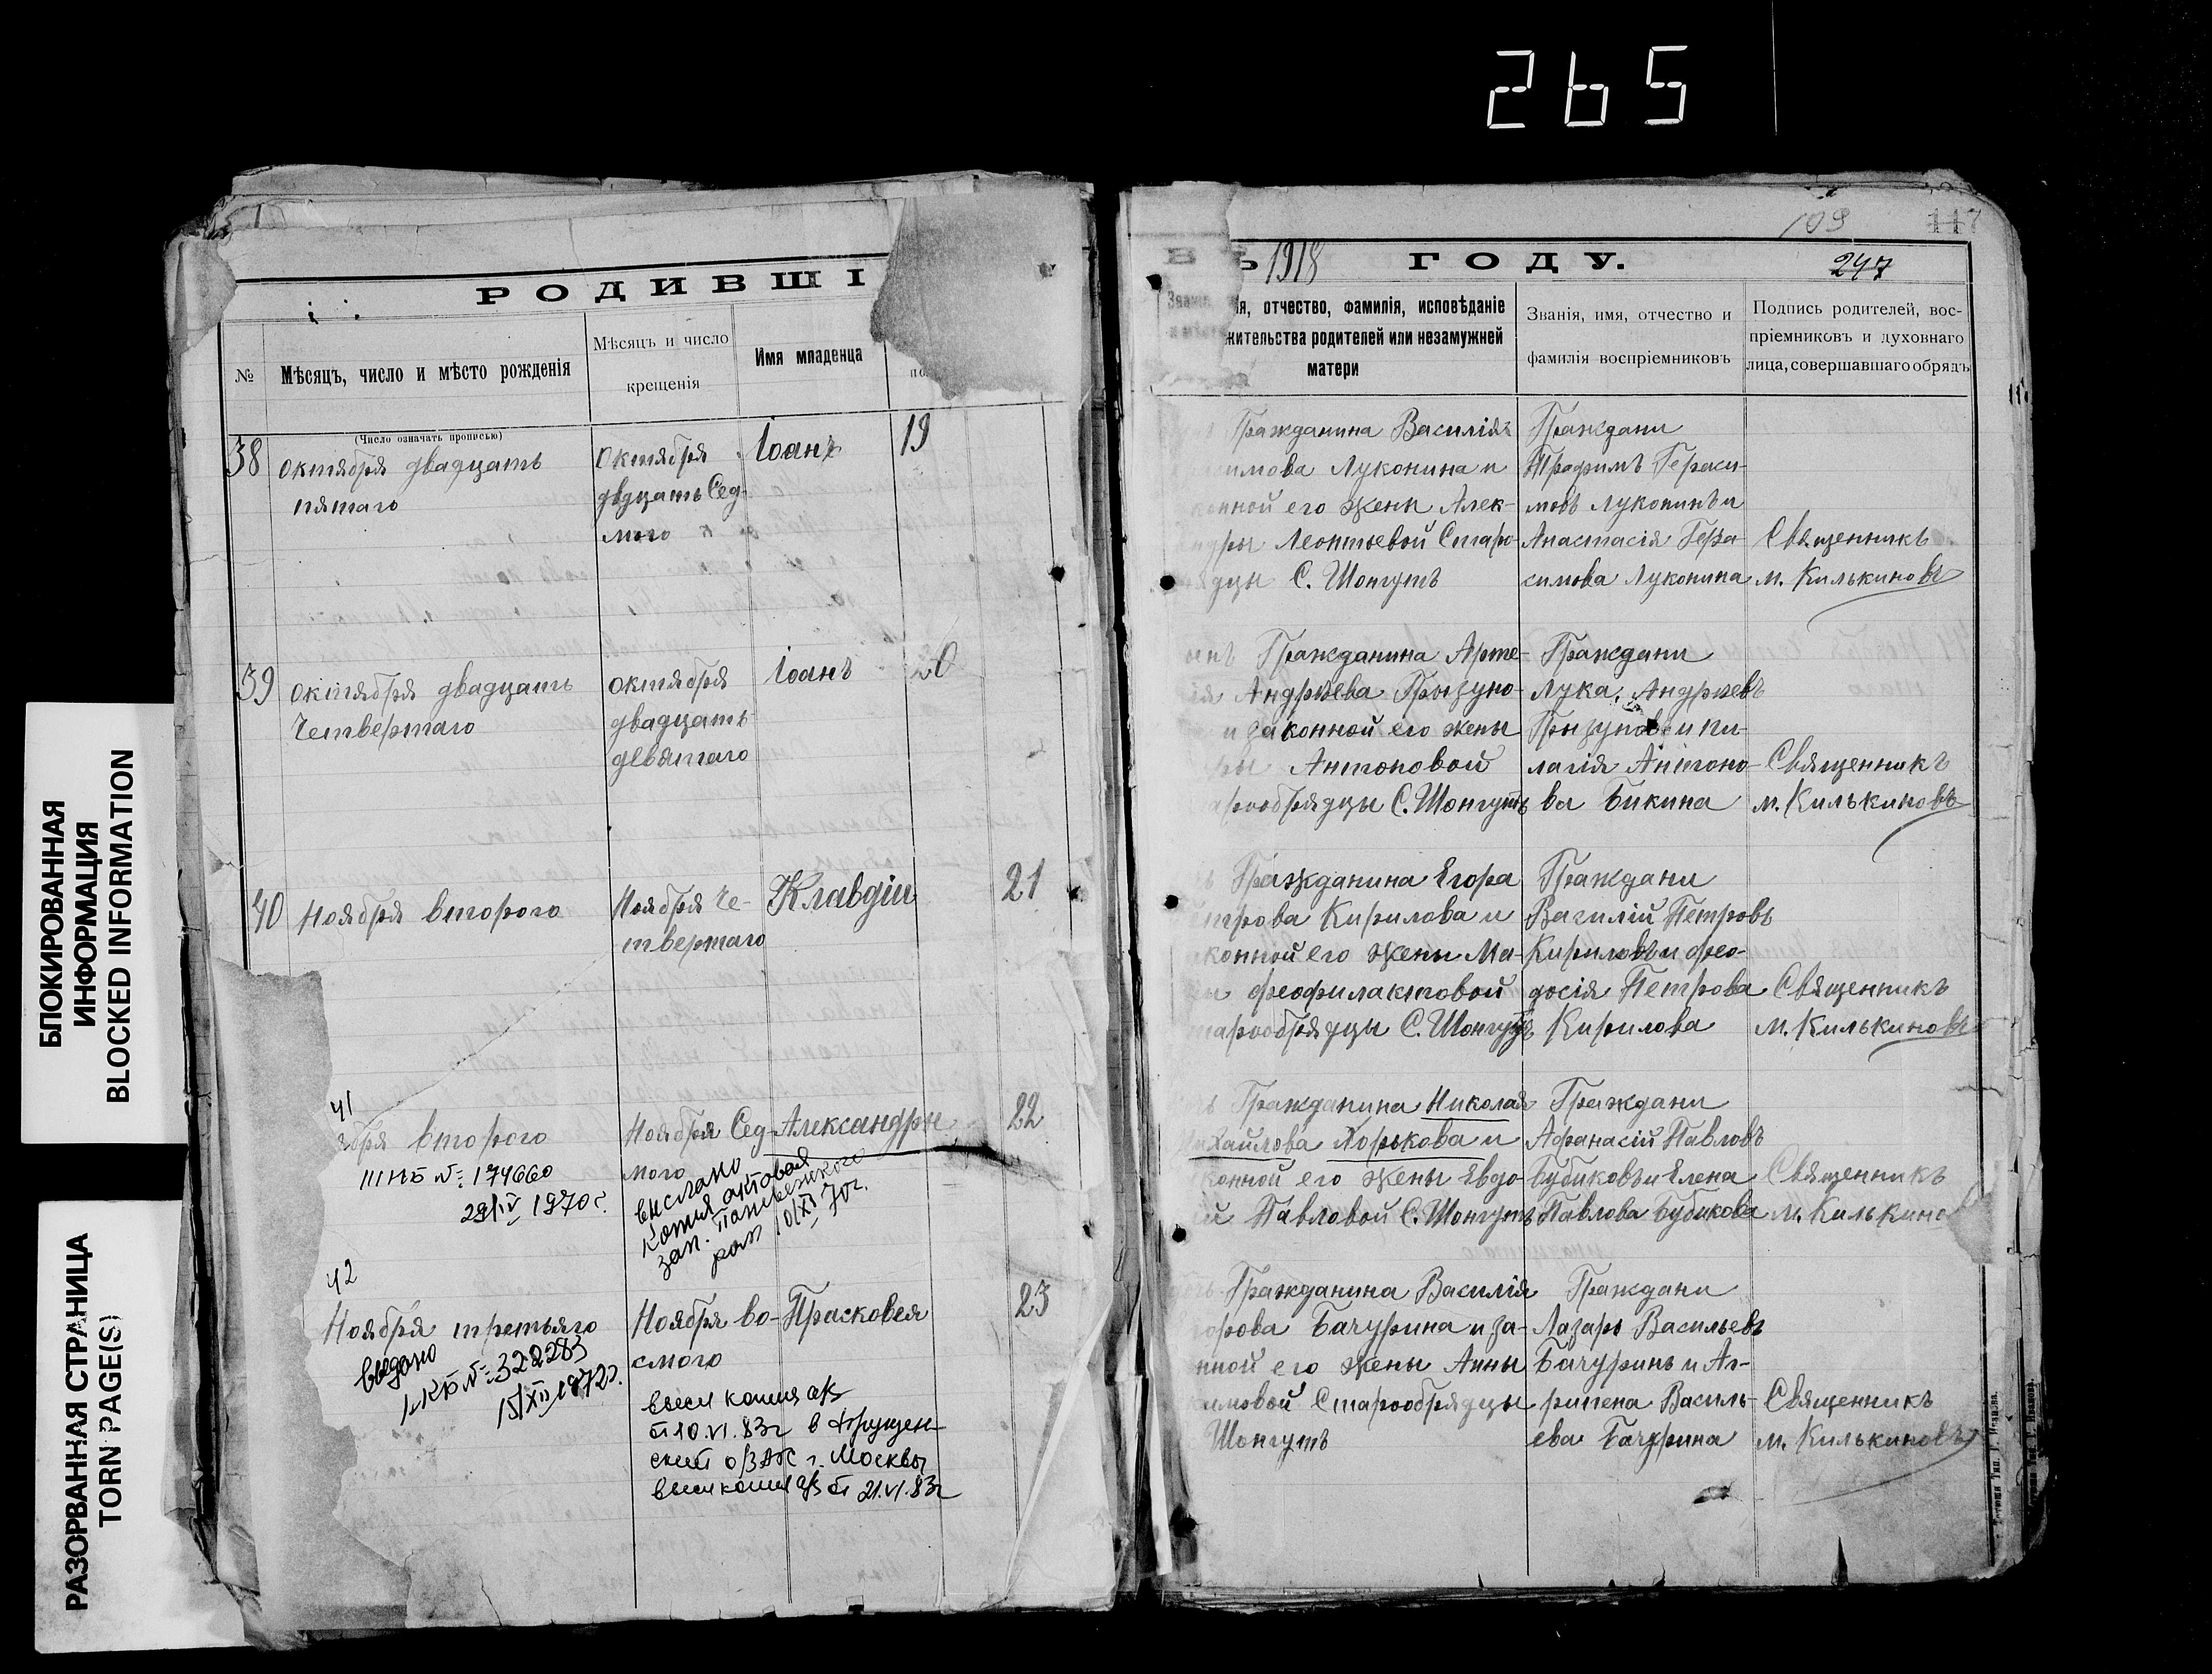 265
БЛОКИРОВАННАЯ
ИНФОРМАЦИЯ
BLOCKED INFORMATION
РАЗОРВАННАЯ СТРАНИЦА
TORN PAGE(S)
РОДИВШІ
№
Мѣсяцъ, число и мѣсто рожденія
Мѣсяцъ и число
крещенія
Имя младенца
(Число означать прописью)
38
октября двадцать
пятаго
Октября
двдцать Сед-
мого
Іоанъ
19
39
октября двадцать
Четвертаго
октября
двадцать
девятаго
Іоанъ
20
40
Ноября второго
Ноября Че-
твертаго
Клавдіи
21
41
ября второго
III НБ №: 174660
29/IV 1970 г.
Ноября Сед-
мого
Александры
22
выслано
копия актовая
зап.
10/XI 70 г.
42
Ноября третьяго
выдано
I-КБ №: 322283
15/XII 1972 г.
Ноября во-
смого
Прасковея
23
высл копия а/з
от 10.VI.83г в Фрунзен-
ский о/ЗАГС г. Москвы
высл копия а/з от 21.VI.83г
109
117
ВЪ 1918 ГОДУ.
247
ія, отчество, фамилія, исповѣданіе
жительства родителей или незамужней
матери
Званія, имя, отчество и
фамилія воспріемниковъ
Подпись родителей, вос-
пріемниковъ и духовнаго
лица, совершавшаго обрядъ
Гражданина Василія
симова Луконина и
конной его жены Алек-
ндры Леонтьевой Старо-
рядцы С. Шонгутъ
Граждани
Трофимъ Гераси-
мовъ Луконинъ и
Анастасія Гера-
симова Луконина
Священникъ
м. Килькиновъ
Гражданина Арте-
ія Андрѣева Грызуно-
и законной его жены
ры Антоновой
арообрядцы С. Шонгутъ
Граждани
Лука Андрѣевъ
Грызуновъ и пи-
лагія Антоно-
ва Бикина
Священникъ
м. Килькиновъ
Гражданина Егора
етрова Кирилова и
аконной его жены Ма-
и феофилактовой
тарообрядцы С. Шонгутъ
Граждани
Василій Петровъ
Кириловъ и фео-
досія Петрова
Кирилова
Священникъ
м. Килькиновъ
Гражданина Николая
ихайлова Хорькова и
конной его жены Евдо-
и Павловой С. Шонгутъ
Граждани
Афанасій Павловъ
Бубиковъ и Елена
Павлова Бубикова
Священникъ
м. Килькино
Гражданина Василія
горова Бачурина и за-
нной его жены Анны
кимовой Старообрядцы
Шонгутъ
Граждани
Лазарь Васильевъ
Бачуринъ и Аг-
рипена Василь-
ева Бачурина
Священникъ
м. Килькиновъ